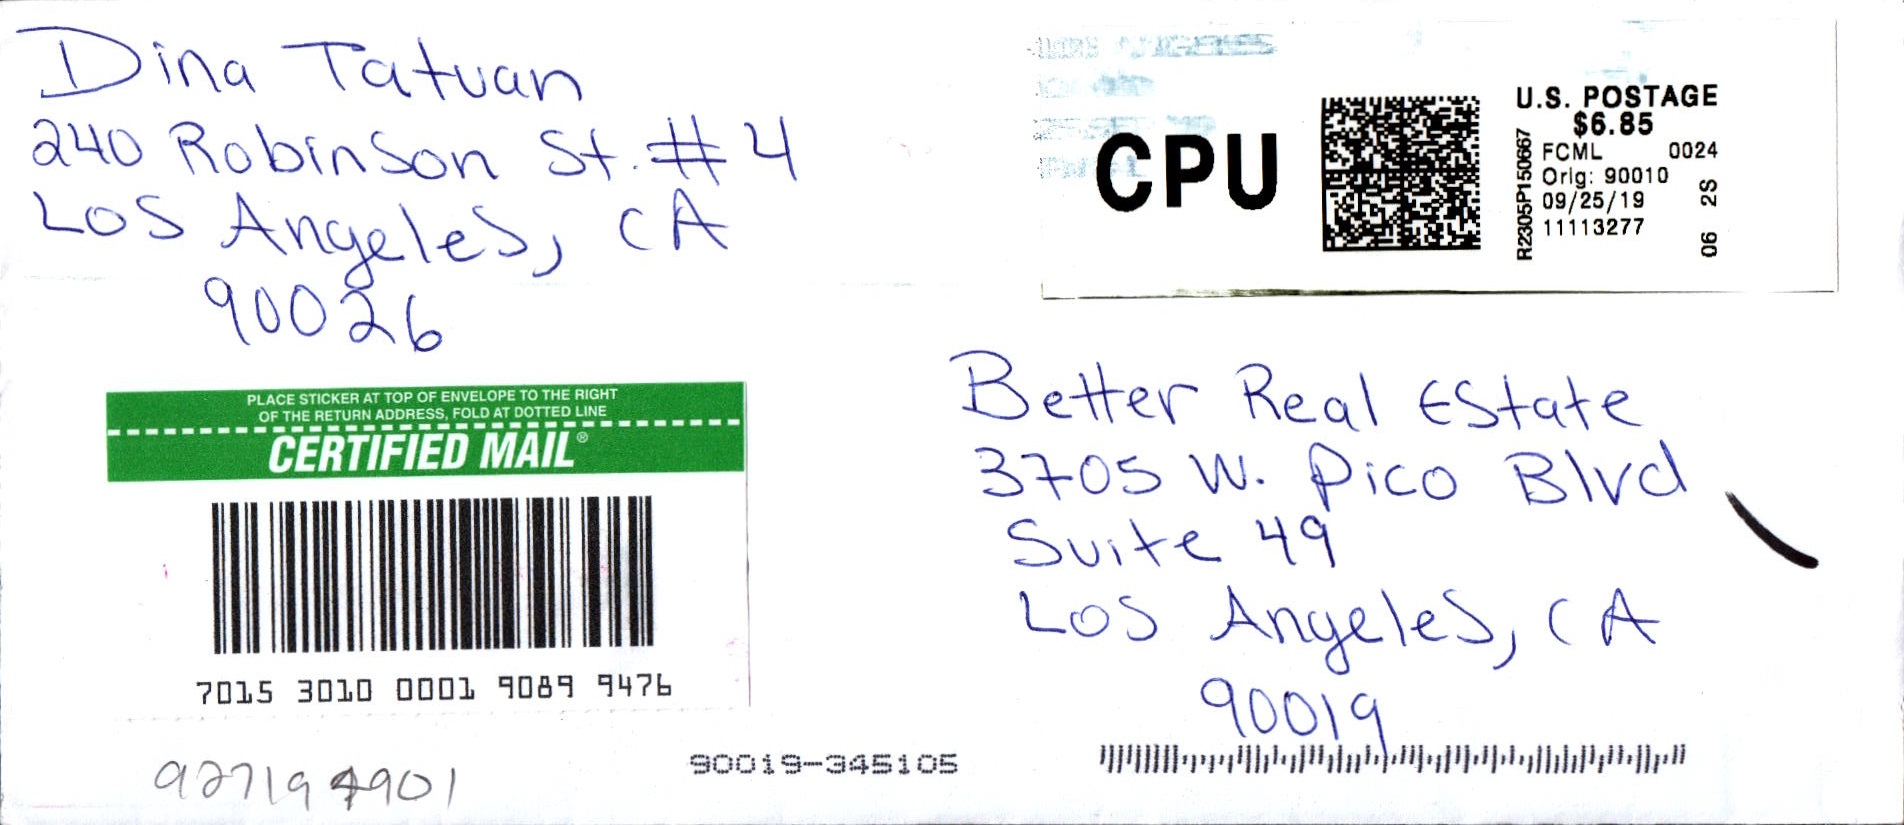 Dina Tatuan
240 Robinson St. #4
Los Angeles, CA
90026
CPU
U.S. POSTAGE
$6.85
FCML 0024
Orig: 90010
09/25/19
11113277
R2305P150667
06 2S
PLACE STICKER AT TOP OF ENVELOPE TO THE RIGHT
OF THE RETURN ADDRESS, FOLD AT DOTTED LINE
CERTIFIED MAIL®
7015 3010 0001 9089 9476
Better Real Estate
3705 W. Pico Blvd
Suite 49
Los Angeles, CA
90019
90019-345105